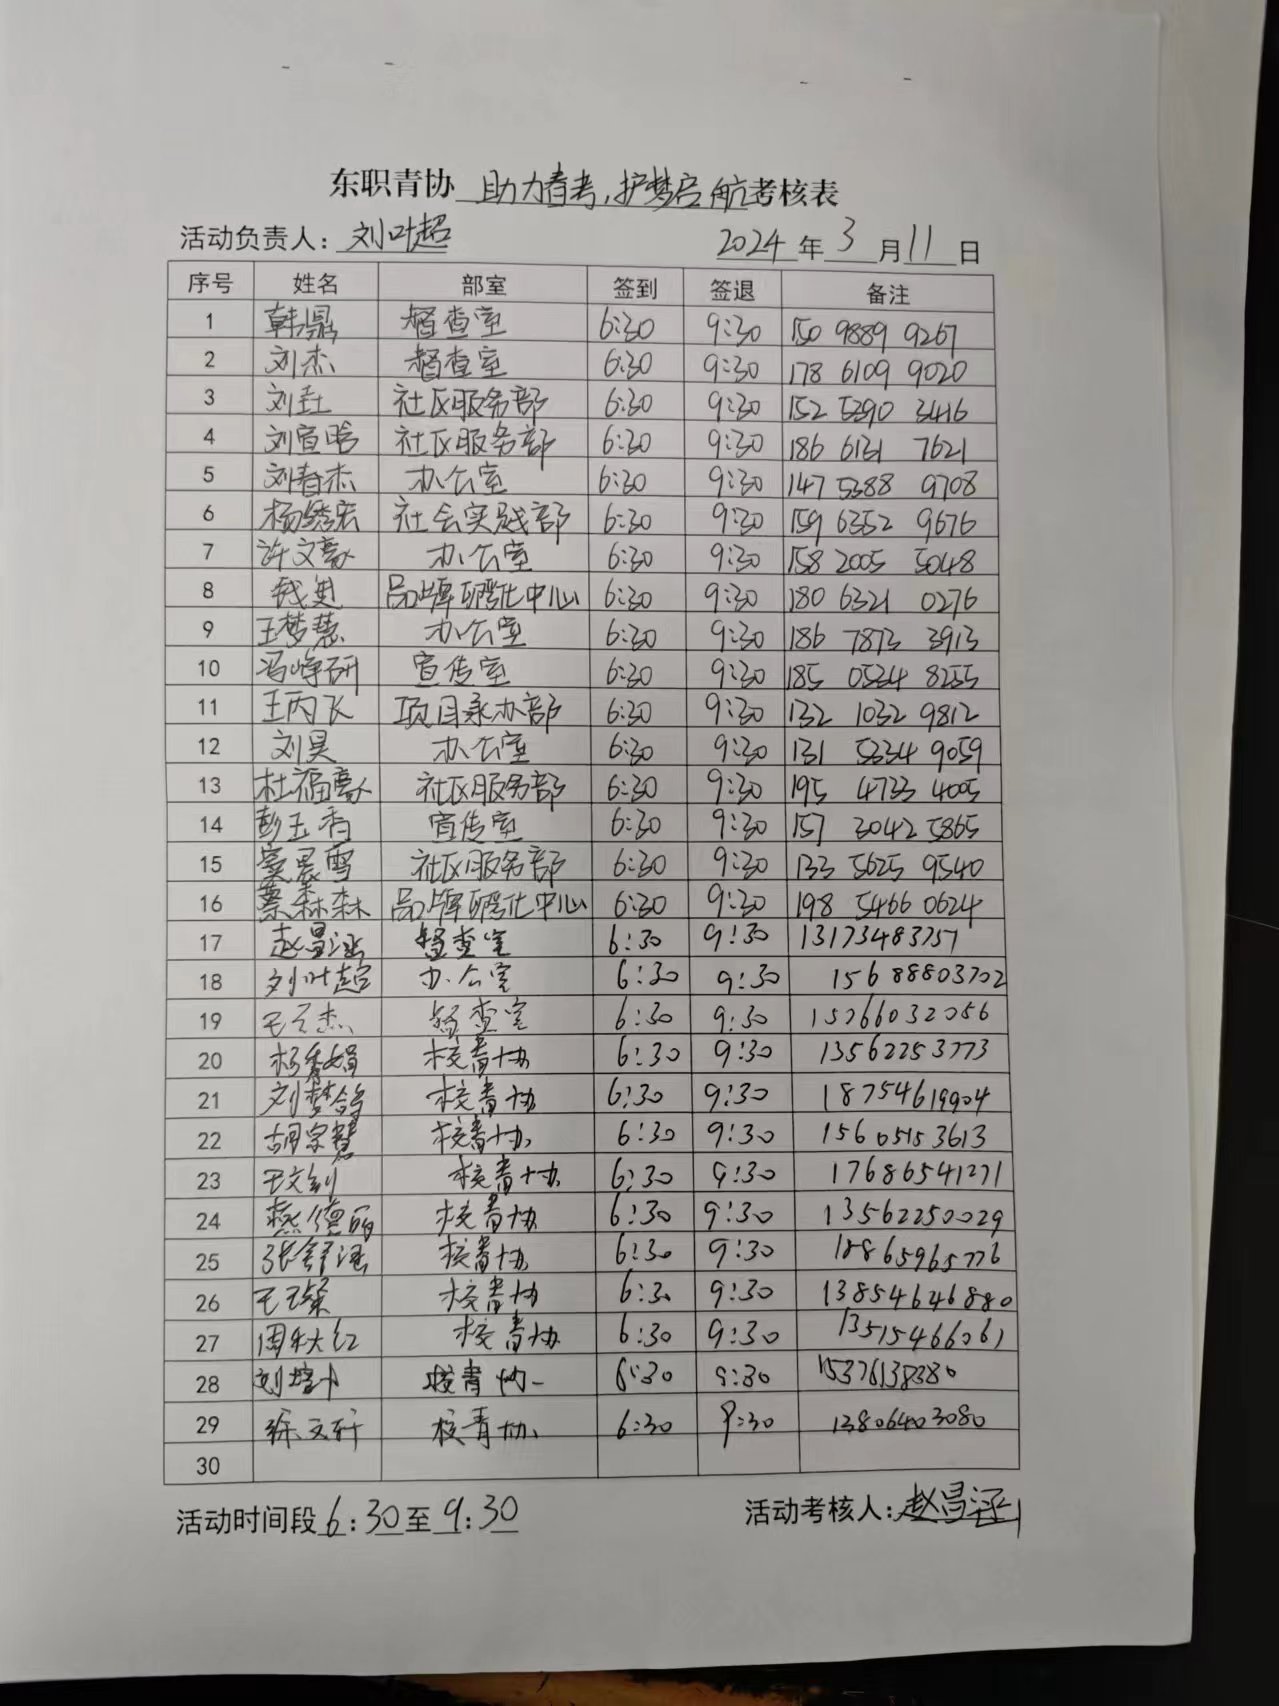 东职青协 助力春考,护梦启航考核表
活动负责人: 刘叶超 2024 年 3 月 11 日
序号 姓名 部室 签到 签退 备注
1 韩鼎 督查室 6:30 9:30 150 9889 9267
2 刘杰 督查室 6:30 9:30 178 6109 9020
3 刘 社区服务部 6:30 9:30 152 5390 3416
4 刘宣晗 社区服务部 6:30 9:30 186 6131 7621
5 刘春杰 办公室 6:30 9:30 147 5388 9708
6 杨绣宏 社会实践部 6:30 9:30 159 6352 9676
7 许文豪 办公室 6:30 9:30 158 2005 5048
8 钱进 品牌孵化中心 6:30 9:30 180 6321 0276
9 王梦慧 办公室 6:30 9:30 186 7873 3913
10 冯峥研 宣传室 6:30 9:30 185 0534 8255
11 王丙飞 项目承办部 6:30 9:30 132 1032 9812
12 刘昊 办公室 6:30 9:30 131 5334 9059
13 杜福豪 社区服务部 6:30 9:30 195 4733 4005
14 彭玉香 宣传室 6:30 9:30 157 3042 5865
15 窦晨雪 社区服务部 6:30 9:30 133 5625 9540
16 綦森森 品牌孵化中心 6:30 9:30 198 5466 0624
17 赵昌涵 督查室 6:30 9:30 13173483757
18 刘叶超 办公室 6:30 9:30 15688803702
19 督查室 6:30 9:30 15266032056
20 杨秀娟 校青协 6:30 9:30 13562253773
21 刘梦鸽 校青协 6:30 9:30 18754619904
22 胡宗慧 校青协 6:30 9:30 15605153613
23 王文钊 校青协 6:30 9:30 17686541271
24 燕德丽 校青协 6:30 9:30 13562250029
25 张舒涵 校青协 6:30 9:30 18865965776
26 校青协 6:30 9:30 13854646880
27 周秋红 校青协 6:30 9:30 13515466061
28 校青协 6:30 9:30 15376138380
29 徐文轩 校青协 6:30 9:30 13806403080
30
活动时间段 6:30 至 9:30 活动考核人: 赵昌涵